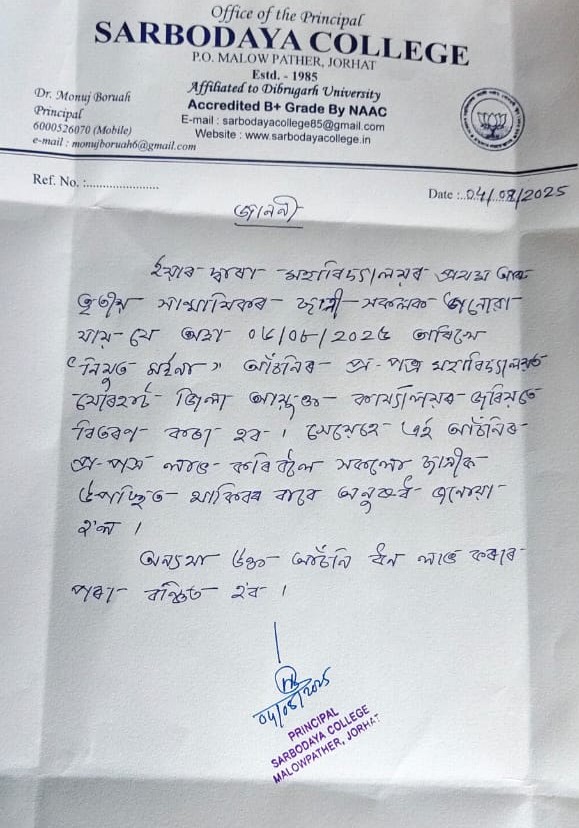 Office of the Principal
SARBODAYA COLLEGE
P.O. MALOW PATHER, JORHAT
Estd. - 1985
Affiliated to Dibrugarh University
Accredited B+ Grade By NAAC
E-mail : sarbodayacollege85@gmail.com
Website : www.sarbodayacollege.in
Dr. Monuj Boruah
Principal
6000526070 (Mobile)
e-mail : monujboruah6@gmail.com
Ref. No. :......................
Date :..04/08/2025
জাননী
ইয়াৰ দ্বাৰা মহাবিদ্যালয়ৰ প্ৰথম আৰু
তৃতীয় ষাণ্মাষিকৰ ছাত্ৰী সকলক জনোৱা
যায় যে অহা 06/08/2025 তাৰিখে
"নিযুত মইনা" আঁচনিৰ প্ৰ-পত্ৰ মহাবিদ্যালয়ত
যোৰহাট জিলা আয়ুক্ত কাৰ্য্যালয়ৰ জৰিয়তে
বিতৰণ কৰা হব । যেয়েহে এই আঁচনিৰ
প্ৰ-পত্ৰ লাভ কৰিবলৈ সকলো ছাত্ৰীক
উপস্থিত থাকিবৰ বাবে অনুৰোধ জনোৱা
হ'ল ।
অন্যথা উক্ত আঁচনি ধন লাভ কৰাৰ
পৰা বঞ্চিত হ'ব ।
04/08/2025
PRINCIPAL
SARBODAYA COLLEGE
MALOWPATHER, JORHAT